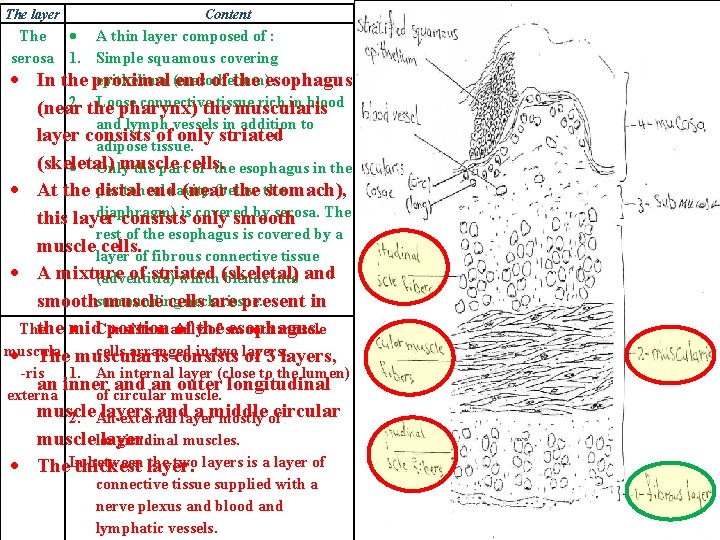 The layer
Content
The
serosa
• A thin layer composed of :
1. Simple squamous covering
2. Loose connective tissue rich in blood
and lymph vessels in addition to
adipose tissue.
• Only the part of the esophagus in the
diaphragm) is covered by serosa. The
rest of the esophagus is covered by a
layer of fibrous connective tissue
(adventitia) which blends into
• In the proximal end of the esophagus
(near the pharynx) the muscularis
layer consists of only striated
(skeletal) muscle cells.
• At the distal end (near the stomach),
this layer consists only smooth
muscle cells.
• A mixture of striated (skeletal) and
smooth muscle cells are present in
the mid portion of the esophagus.
• The muscularis consists of 3 layers,
an inner and an outer longitudinal
muscle layers and a middle circular
muscle layer.
• The thickest layer.
The
muscula
-ris
externa
cells arranged in two layers:
1. An internal layer (close to the lumen)
of circular muscle.
2. An external layer mostly of
longitudinal muscles.
In between the two layers is a layer of
connective tissue supplied with a
nerve plexus and blood and
lymphatic vessels.
stratified squamous
epithelium
blood vessel
uscularis
(circ)
(long)
4-mucosa
3-Submucosa
itudinal
scle fibers
cular muscle
fibers
2-muscularis
itudinal
scle fibers
1-fibrous layer